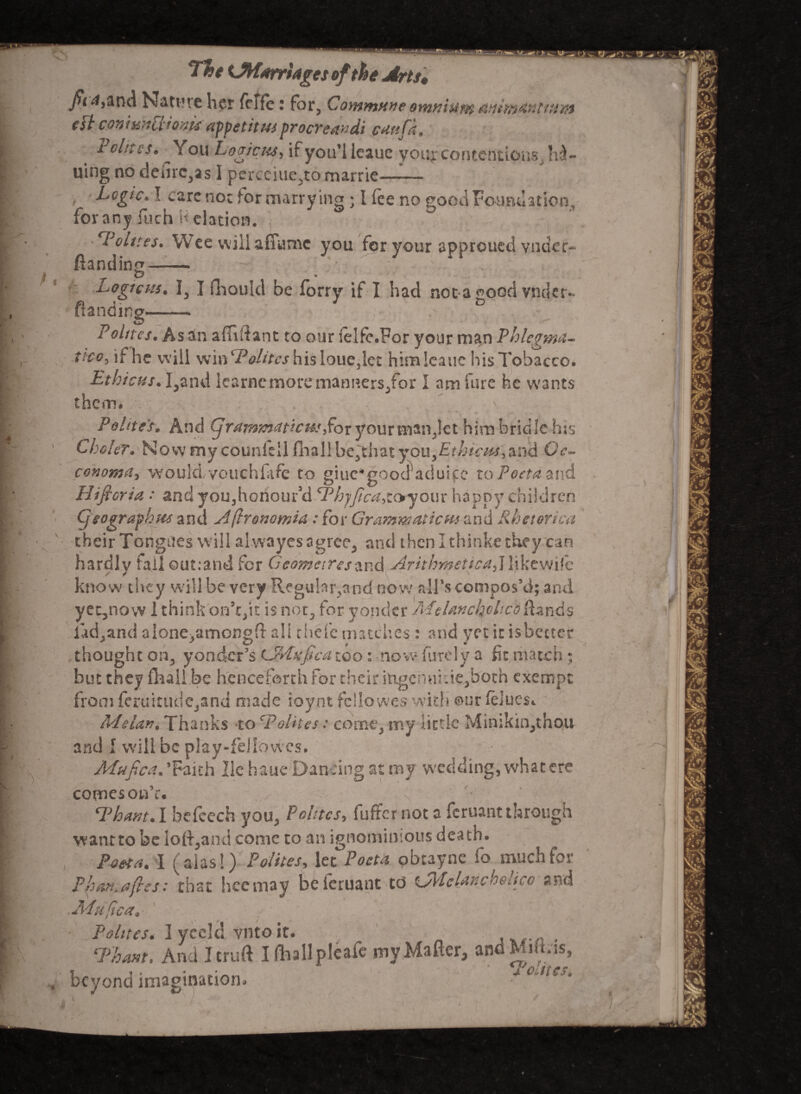 The Marriages of the Arts.
sica, and Nature her selfe: for, Commune omnium animantium
est coniunctionis appetitus procreandi causâ.
Polites. You Logicus, if you'l leaue your contentions, hà-
uing no desire, as I perceiue, to marrie——
Logic. I care not for marrying; I see no good Foundation,
for any such Relation.
Polites. Wee will assume you for your approued vnder-
standing——
Logicus. I, I should be sorry if I had not a good vnder-
standing——
Polites. As an assistant to our selfe. For your man Phlegma-
tico, if he will win Polites his loue, let him leaue his Tobacco.
Ethicus. I, and learne more manners, for I am sure he wants
them.
Polites. And Grammaticus, for your man, let him bridle his
Choler. Now my counsell shall be, that you, Ethicus, and Oe-
conoma, would vouchsafe to giue good aduice to Poeta and
Historia: and you, honour'd Physica, to your happy children
Geographus and Astronomia: for Grammaticus and Rhetorica
their Tongues will alwayes agree, and then I thinke they can
hardly fall out: and for Geometres and Arithmetica, I likewise
know they will be very Regular, and now all's compos'd; and
yet, now I think on't, it is not, for yonder Melancholico stands
sad, and alone, amongst all these matches: and yet it is better
thought on, yonder's Musica too: now surely a fit match;
but they shall be henceforth for their ingenuitie, both exempt
from seruitude, and made ioynt fellowes with our selues.
Melan. Thanks to Polites: come, my little Minikin, thou
and I will be play-fellowes.
Musica. 'Faith Ile haue Dancing at my wedding, what ere
comes on't.
Phant. I beseech you, Polites, suffer not a seruant through
want to be lost, and come to an ignominious death.
Poeta. I (alas!) Polites, let Poeta obtayne so much for
Phantastes: that hee may be seruant to Melancholico and
Musica.
Polites. I yeeld vnto it.
Phant. And I trust I shall please my Master, and Mistris,
beyond imagination.
Polites.